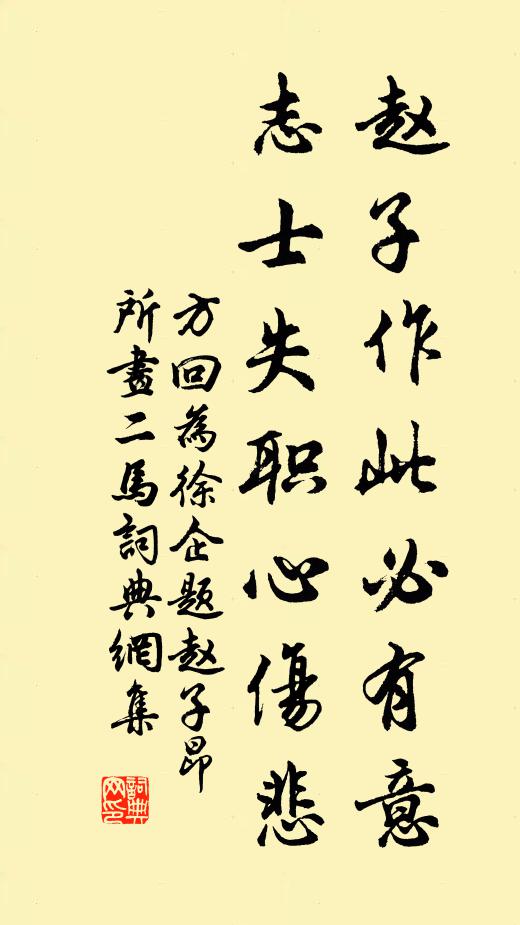 赵子作此必有意
志士失职心傷悲
方回為徐企題赵子昂
所畫二馬詞典網集
詞典
网印